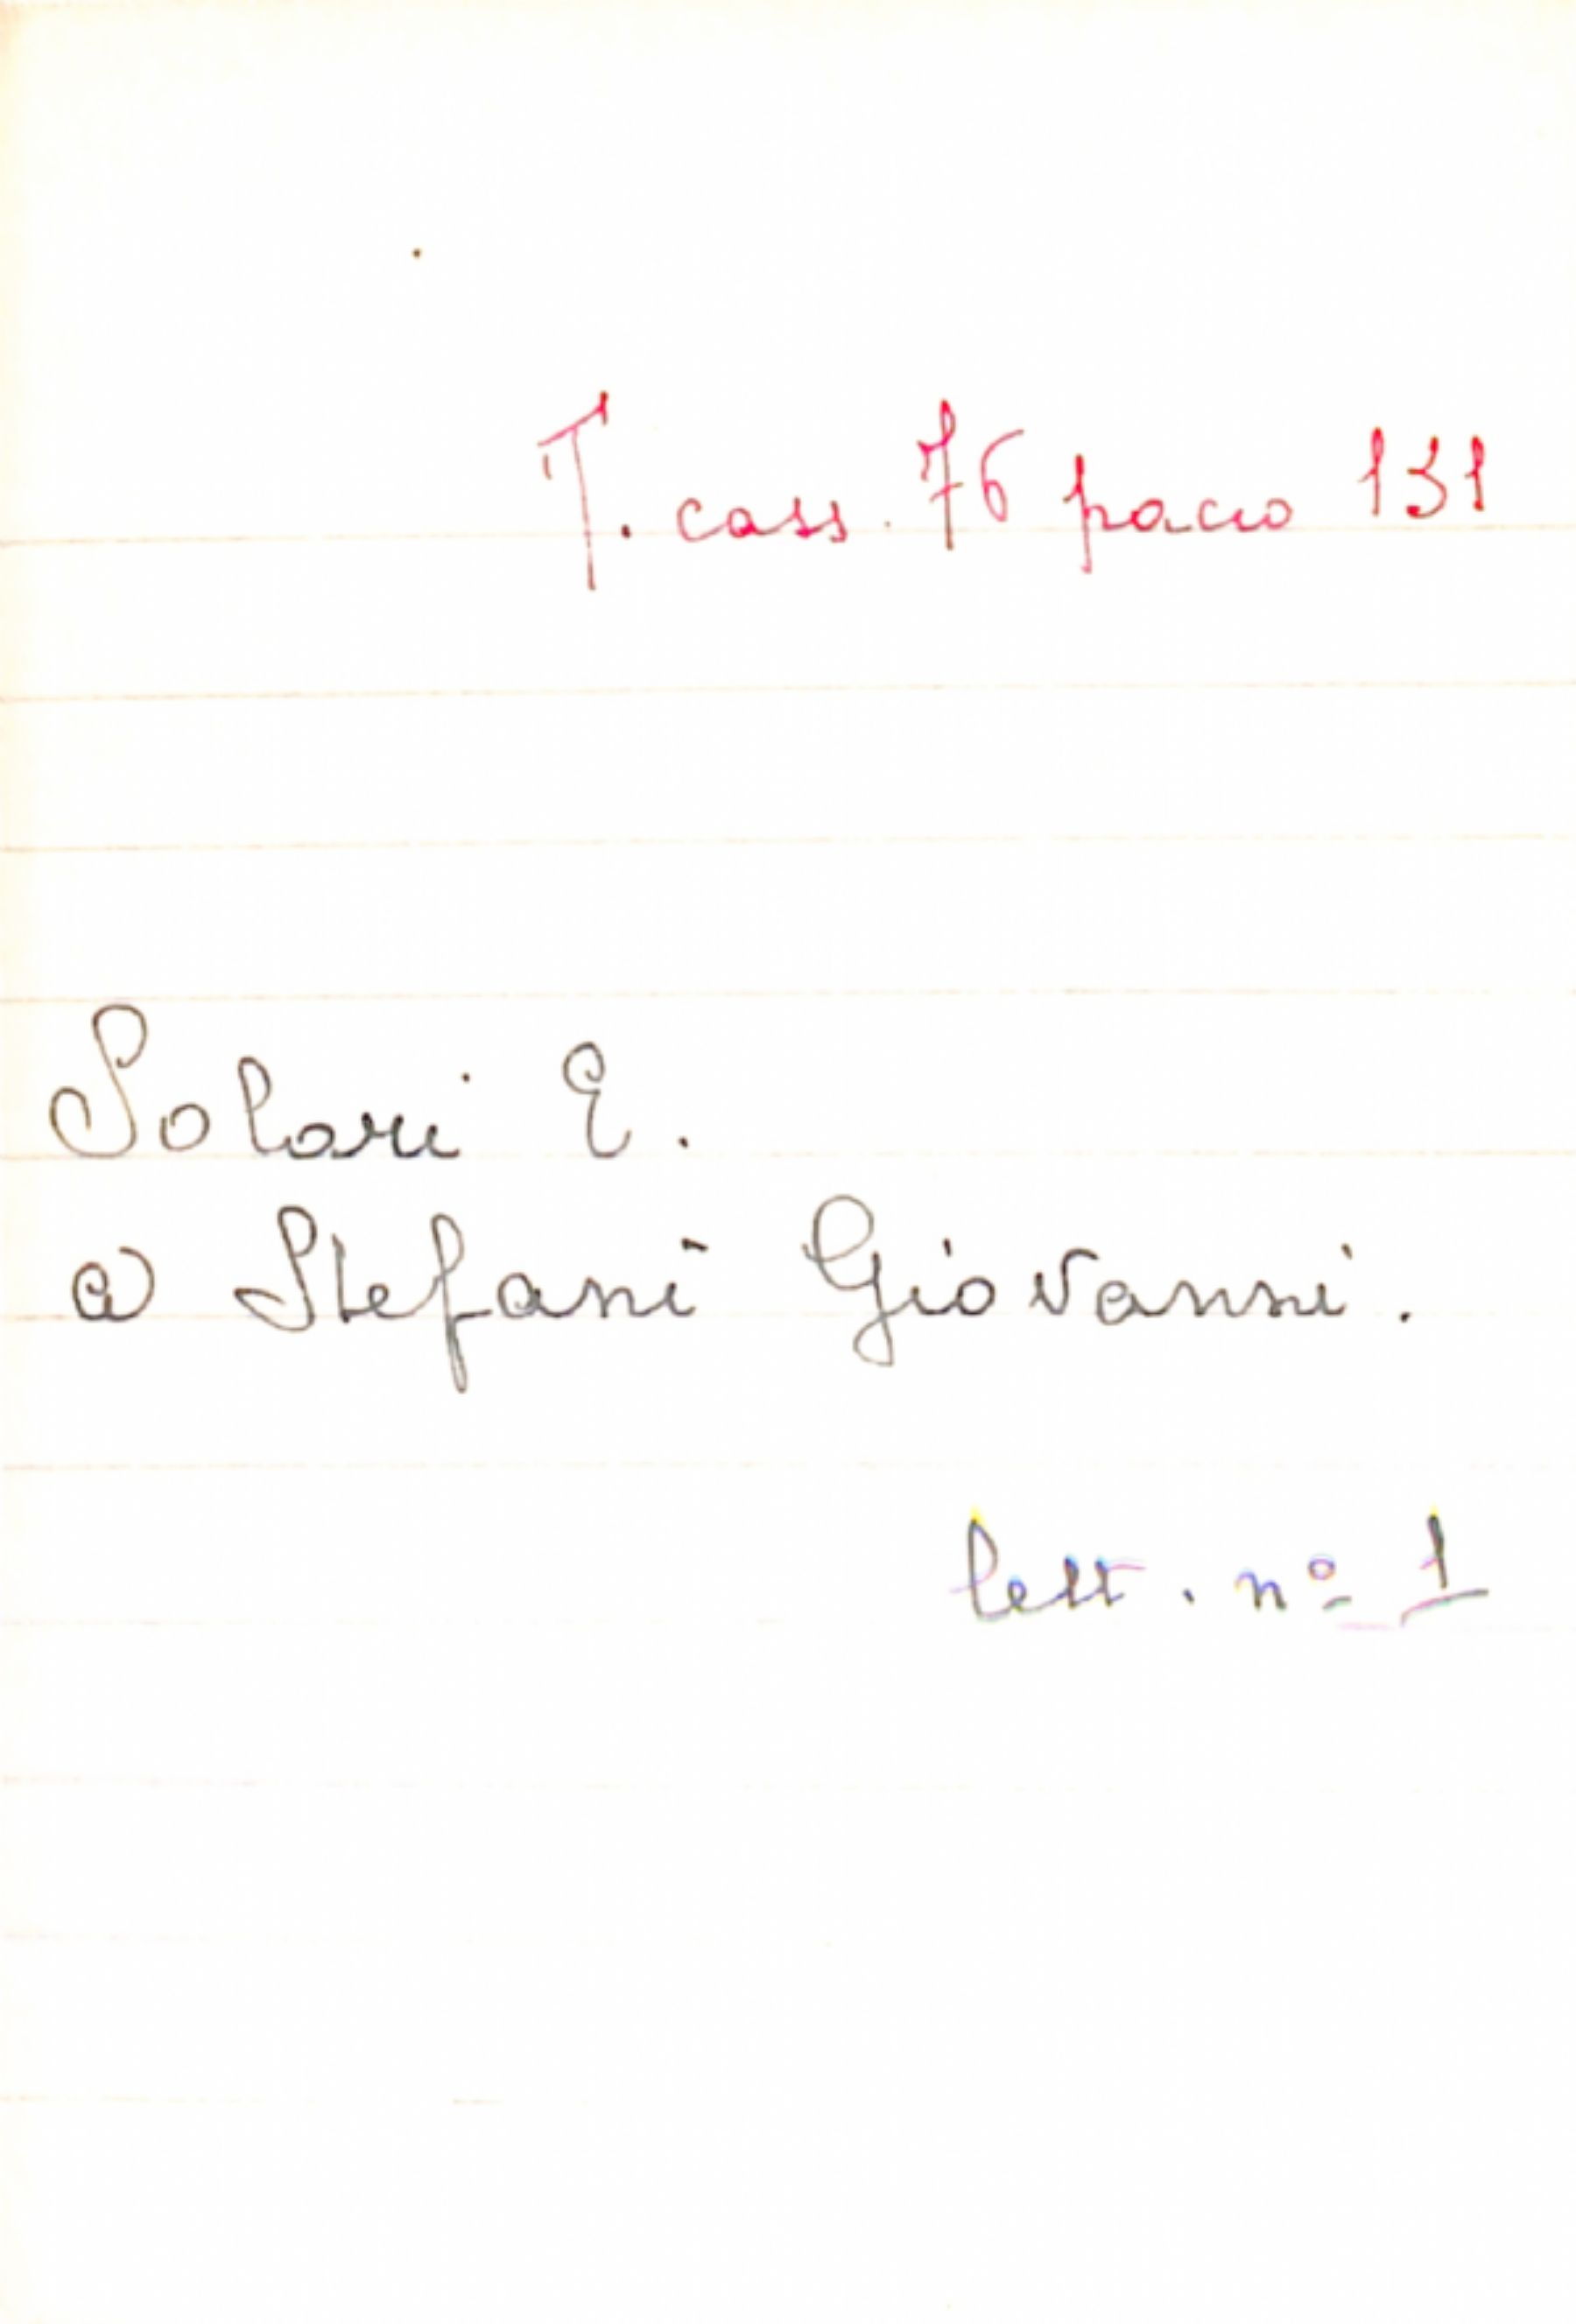 T. cass. 76 pacco 131
Solari E.
a Stefani Giovanni.
lett. nº 1